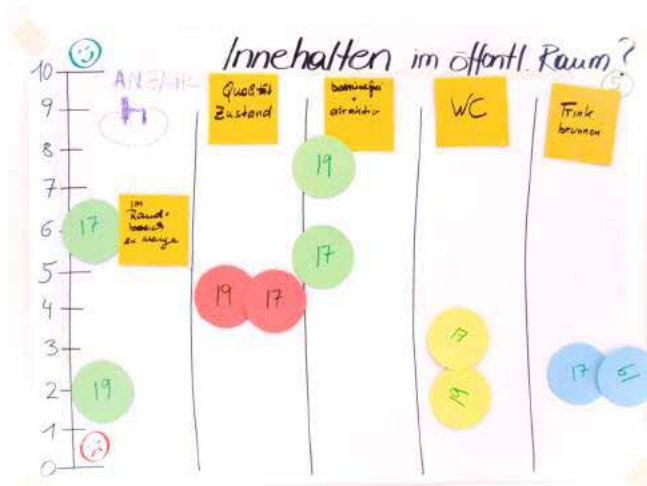 Innehalten im öffentl. Raum?
10
9
8
7
6
5
4
3
2
1
0
ANZAHL
Qualität
Zustand
barrierefrei
+
atraktiv
WC
Trink
brunnen
5
im
Rand-
17
19
19
17
19
17
17
19
17